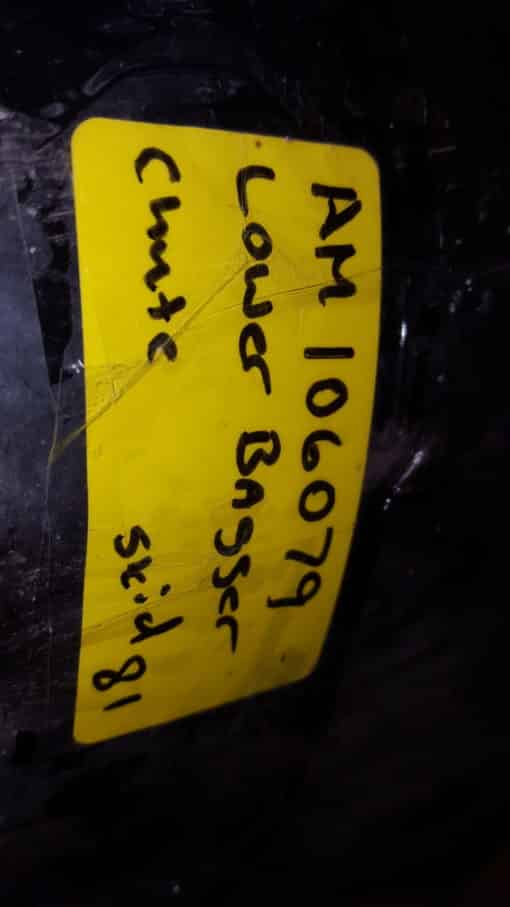 AM 106079
Lower BAgger
Chute
skid 81